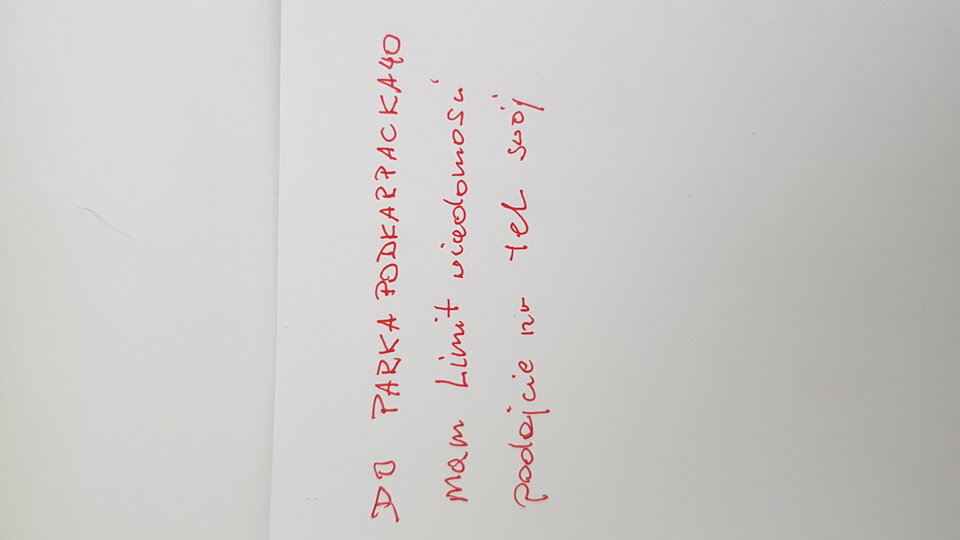 DO PARKAPODKARPACKA40
Mam Limit wiedomości
podajcie nr tel swój